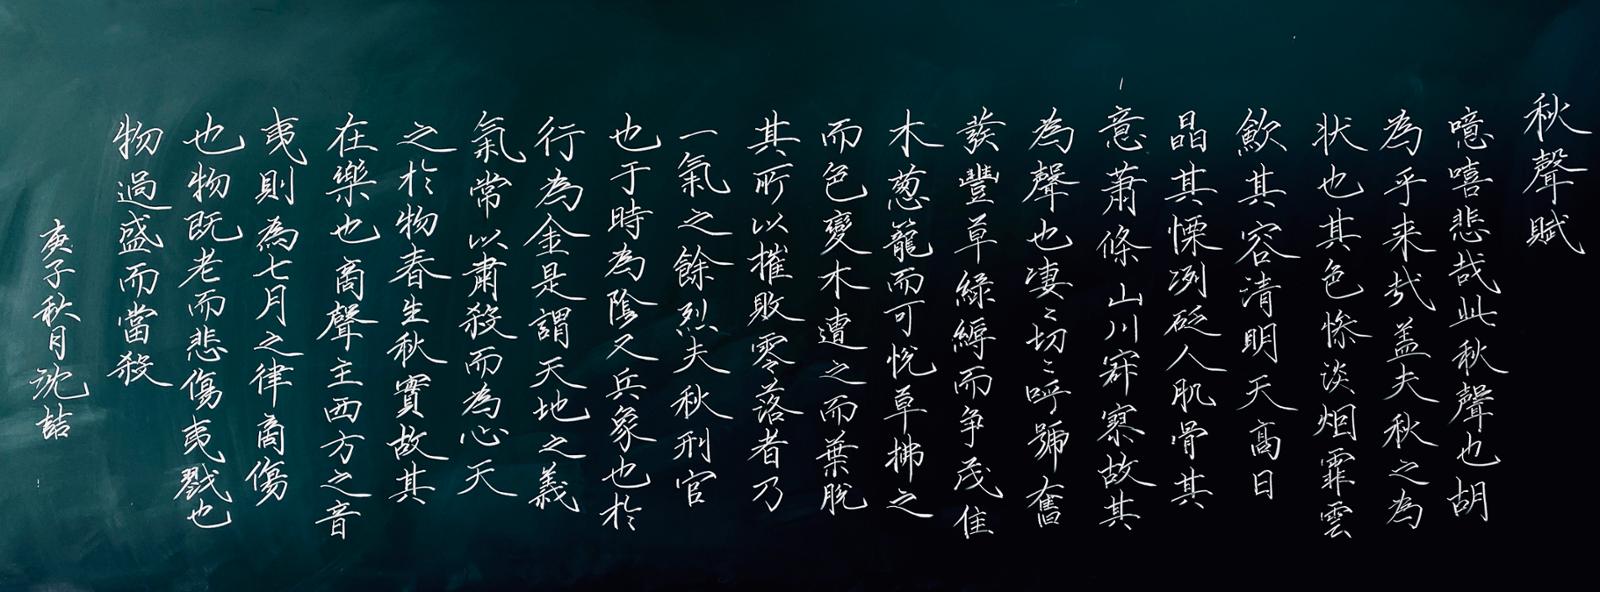 秋聲賦
噫嘻悲哉此秋聲也胡
為乎来哉盖夫秋之為
状也其色惨淡烟霏雲
歛其容清明天高日
晶其慄冽砭人肌骨其
意蕭條山川寂寥故其
為聲也凄〻切〻呼號奮
發豐草綠縟而争茂佳
木葱蘢而可悅草拂之
而色變木遭之而葉脫
其所以摧敗零落者乃
一氣之餘烈夫秋刑官
也于時為陰又兵象也於
行為金是謂天地之義
氣常以肅殺而為心天
之於物春生秋實故其
在樂也商聲主西方之音
夷則為七月之律商傷
也物既老而悲傷夷戮也
物過盛而當殺
庚子秋月沈喆